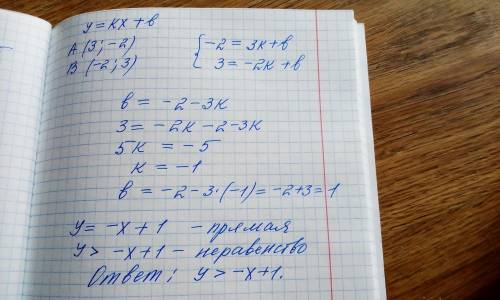 y = кx + в
A (3; -2)
B (-2; 3)
{ -2 = 3к + в
3 = -2к + в
в = -2 - 3к
3 = -2к - 2 - 3к
5к = -5
к = -1
в = -2 - 3·(-1) = -2+3 = 1
y = -x + 1 - прямая
y > -x+1 - неравенство
Ответ: y > -x+1.